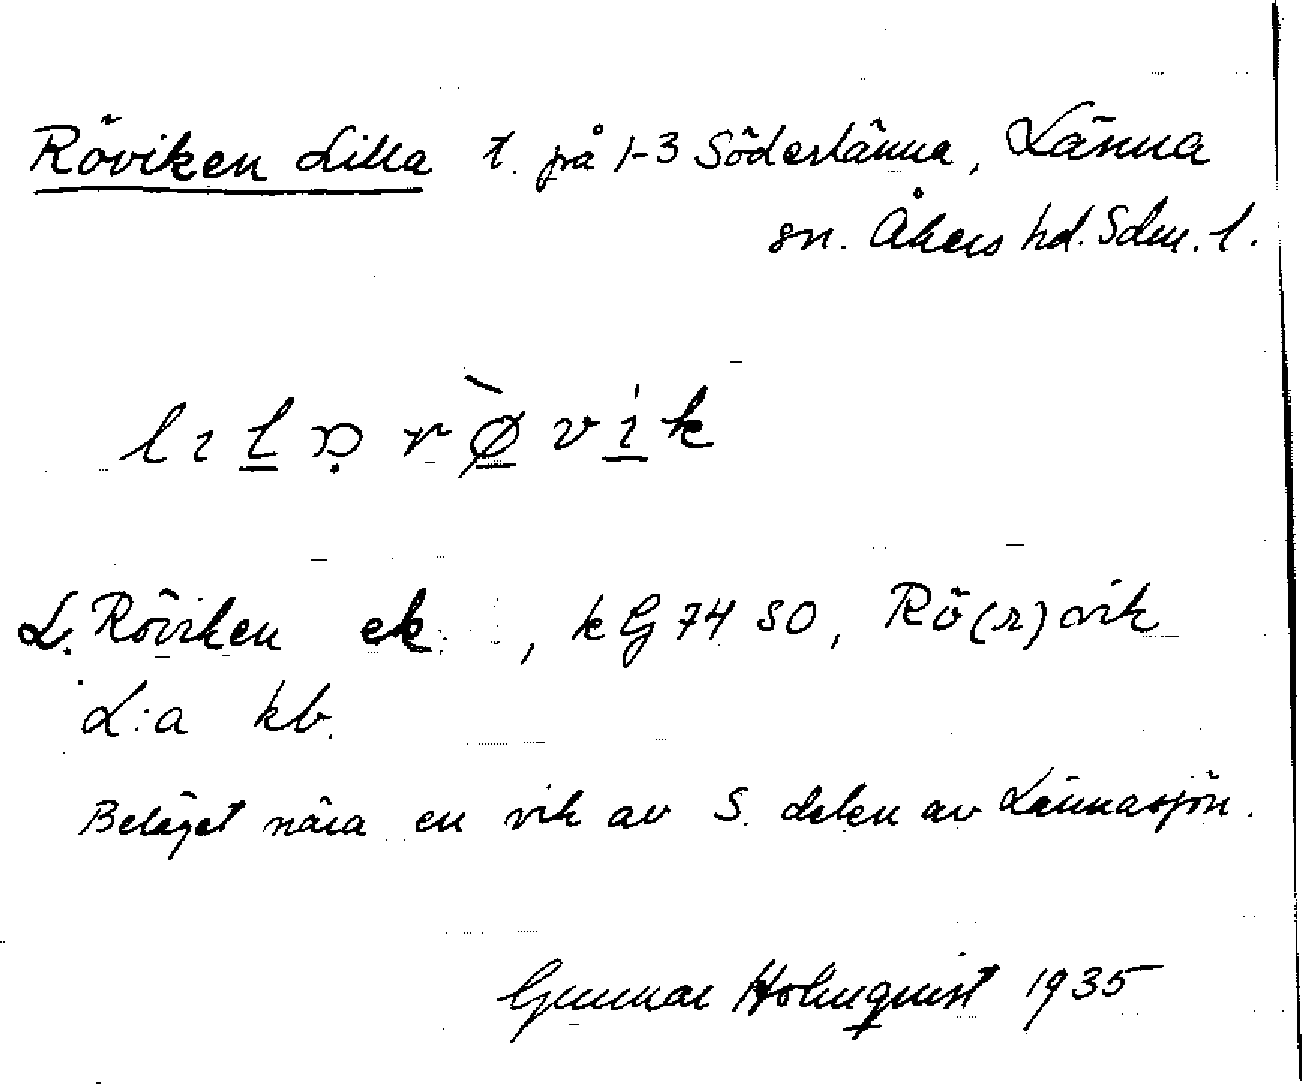 Röviken Lilla t. på 1-3 Söderlänna, Länna
sn. Åkers hd. Sdm. l.
L. Röviken ek. , k G 74 SO, Rö(r)vik
L:a kb.
Beläget nära en vik av S. delen av Lännasjön.
Gunnar Holmquist 1935